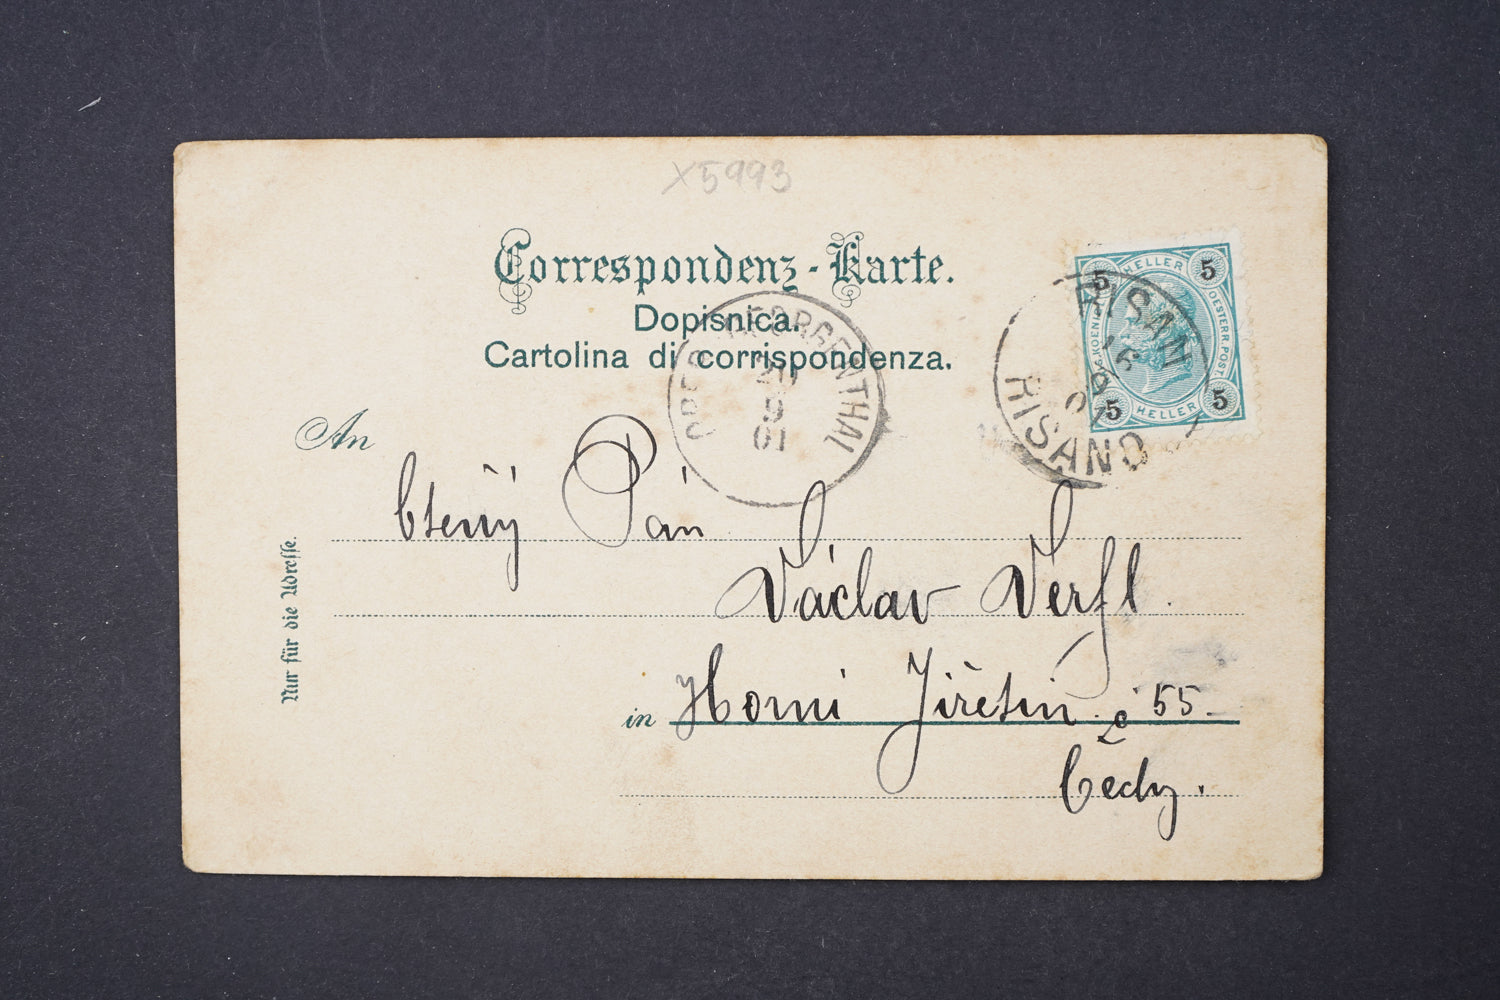 X5993
Correspondenz-Karte.
Dopisnica.
Cartolina di corrispondenza.
An
Ctěný Pán
Václav Verfl.
in Horní Jiřetín. č 55.
Čechy.
Nur für die Adresse.
OBER GEORGENTHAL
20
9
01
RISAN
16
9
01
RISANO
5 HELLER 5
OESTERR.POST
5 HELLER 5